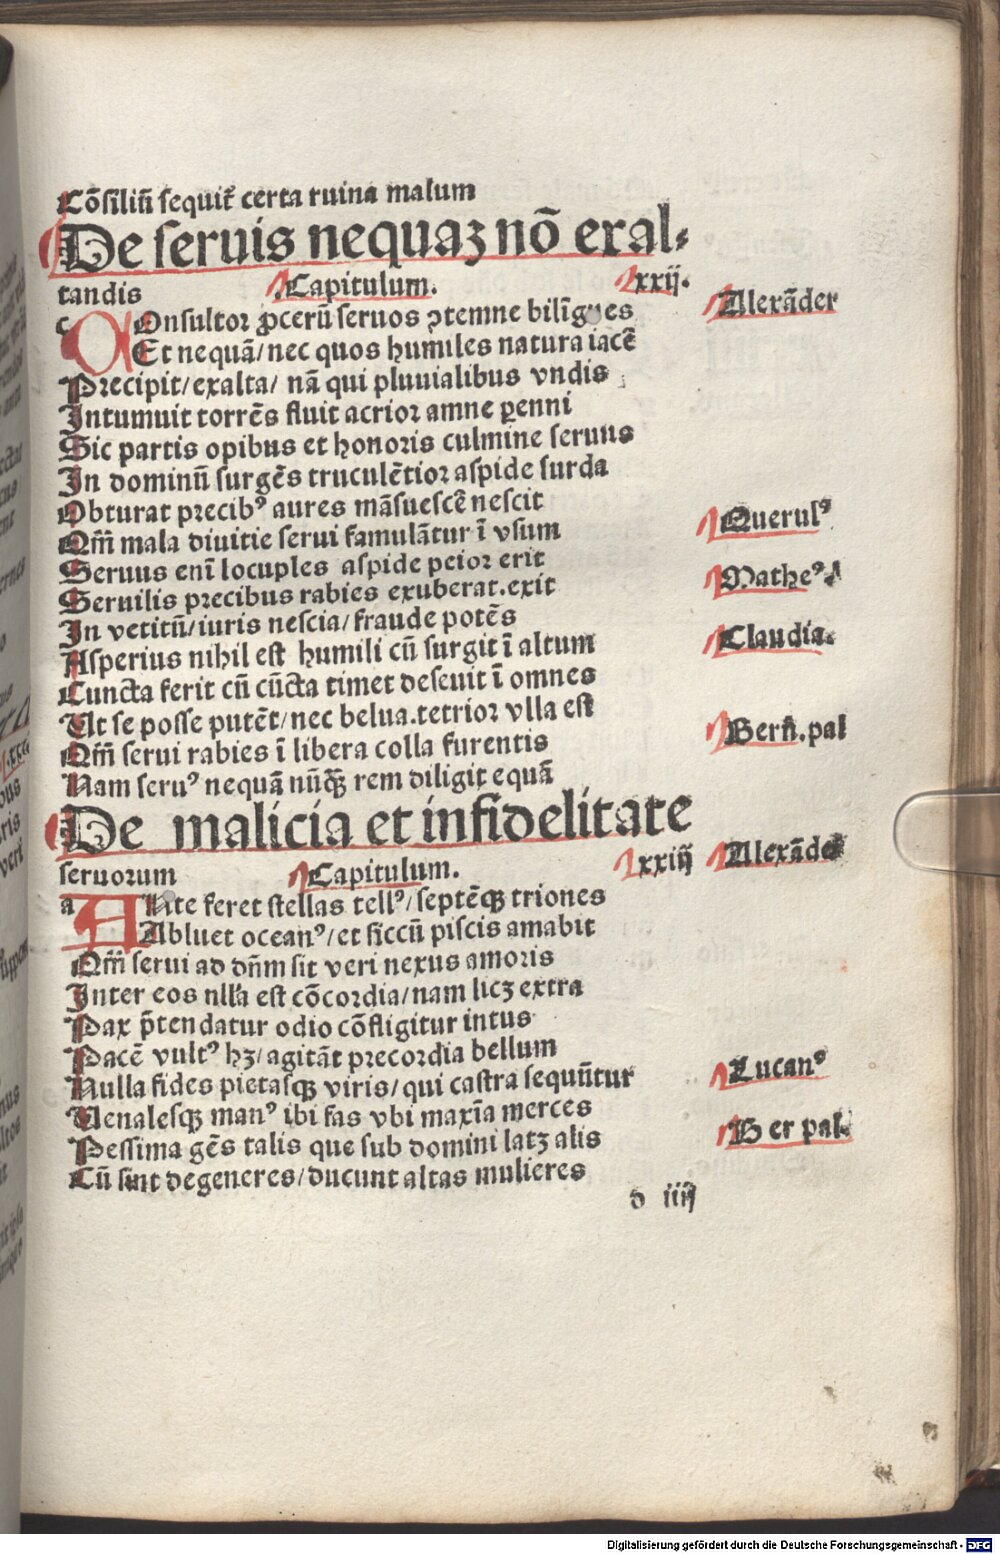 Cōsiliū sequit̃ certa ruina malum
De seruis nequaꝫ nō exal⸗
tandis Capitulum. xxij.
Alexāder
c Onsultor ꝓcerū seruos ꝯtemne bilīgues
Et nequā/ nec quos humiles natura iacē
Precipit/ exalta/ nā qui pluuialibus vndis
Intumuit torrēs fluit acrior amne ꝑenni
Sic partis opibus et honoris culmine seruus
In dominū surgēs truculētior aspide surda
Obturat precibꝰ aures māsuescē nescit
Qm̄ mala diuitie serui famulātur ī vsum
Querulꝰ
Seruus enī locuples aspide peior erit
Seruilis precibus rabies exuberat. exit
Matheꝰ
In vetitū/ iuris nescia/ fraude potēs
Asperius nihil est humili cū surgit ī altum
Claudia.
Cuncta ferit cū cūcta timet deseuit ī omnes
Ut se posse putēt/ nec belua. tetrior vlla est
Qm̄ serui rabies ī libera colla furentis
Berñ. pal
Nam seruꝰ nequā nūqꝫ rem diligit equā
De malicia et infidelitate
seruorum Capitulum. xxiij
Alexāde
a Ante feret stellas tellꝰ/ septēqꝫ triones
Abluet oceanꝰ/ et siccū piscis amabit
Qm̄ serui ad dn̄m sit veri nexus amoris
Inter eos nll'a est cōcordia/ nam licꝫ extra
Pax p̄tendatur odio cōfligitur intus
Pacē vultꝰ hꝫ/ agitāt precordia bellum
Nulla fides pietasqꝫ viris/ qui castra sequūtur
Lucanꝰ
Uenalesqꝫ manꝰ ibi fas vbi maxīa merces
Pessima gēs talis que sub domini latꝫ alis
Ber pal.
Cū sint degeneres/ ducunt altas mulieres
d iiij
Digitalisierung gefördert durch die Deutsche Forschungsgemeinschaft - DFG